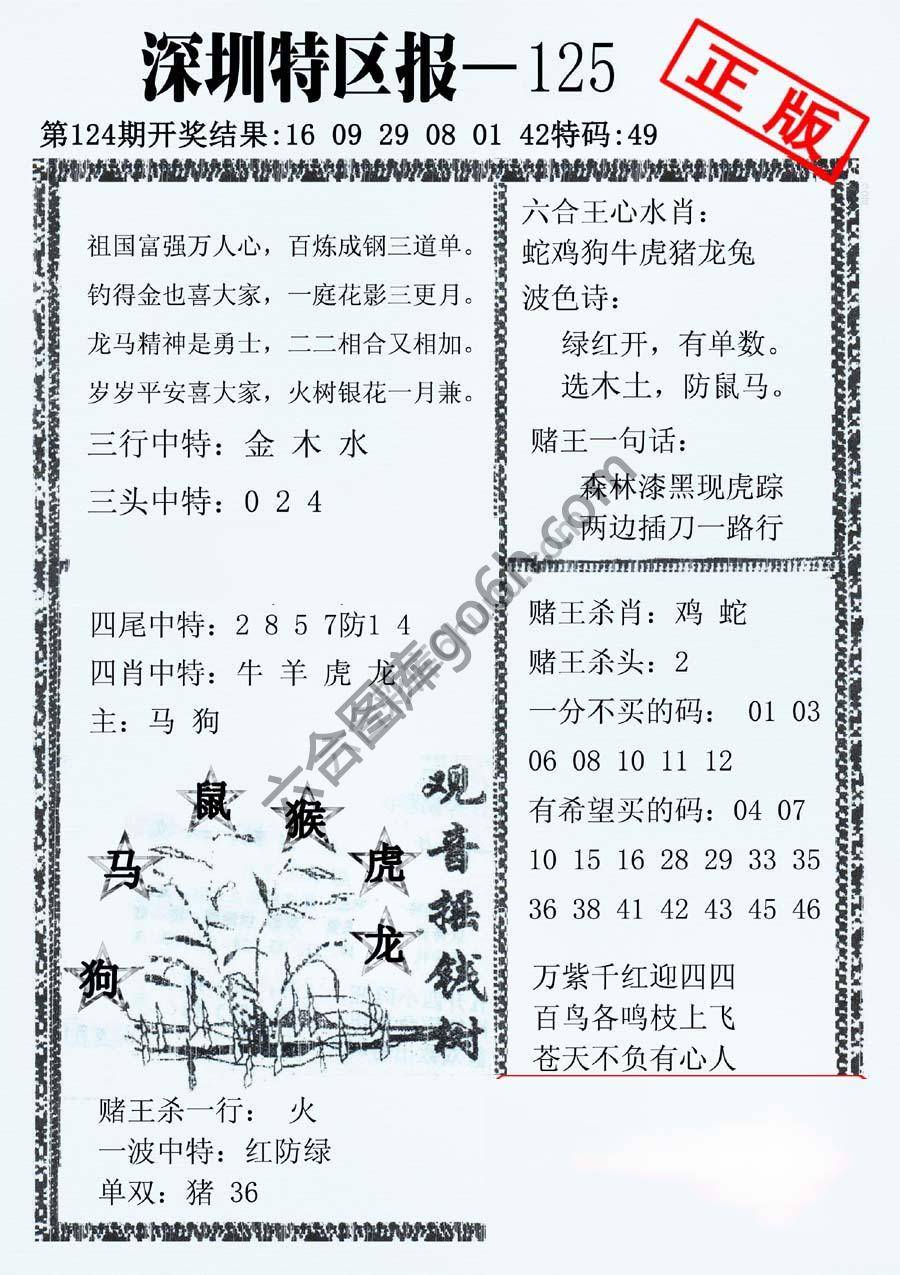 深圳特区报—125
正版
第124期开奖结果:16 09 29 08 01 42特码:49
祖国富强万人心，百炼成钢三道单。
钓得金也喜大家，一庭花影三更月。
龙马精神是勇士，二二相合又相加。
岁岁平安喜大家，火树银花一月兼。
三行中特：金 木 水
三头中特：0 2 4
四尾中特：2 8 5 7防1 4
四肖中特：牛 羊 虎 龙
主：马 狗
鼠
猴
马
虎
龙
狗
观音摇钱树
赌王杀一行： 火
一波中特：红防绿
单双：猪 36
六合王心水肖：
蛇鸡狗牛虎猪龙兔
波色诗：
绿红开，有单数。
选木土，防鼠马。
赌王一句话：
森林漆黑现虎踪
两边插刀一路行
赌王杀肖：鸡 蛇
赌王杀头：2
一分不买的码： 01 03
06 08 10 11 12
有希望买的码：04 07
10 15 16 28 29 33 35
36 38 41 42 43 45 46
万紫千红迎四四
百鸟各鸣枝上飞
苍天不负有心人
六合图库go6h.com